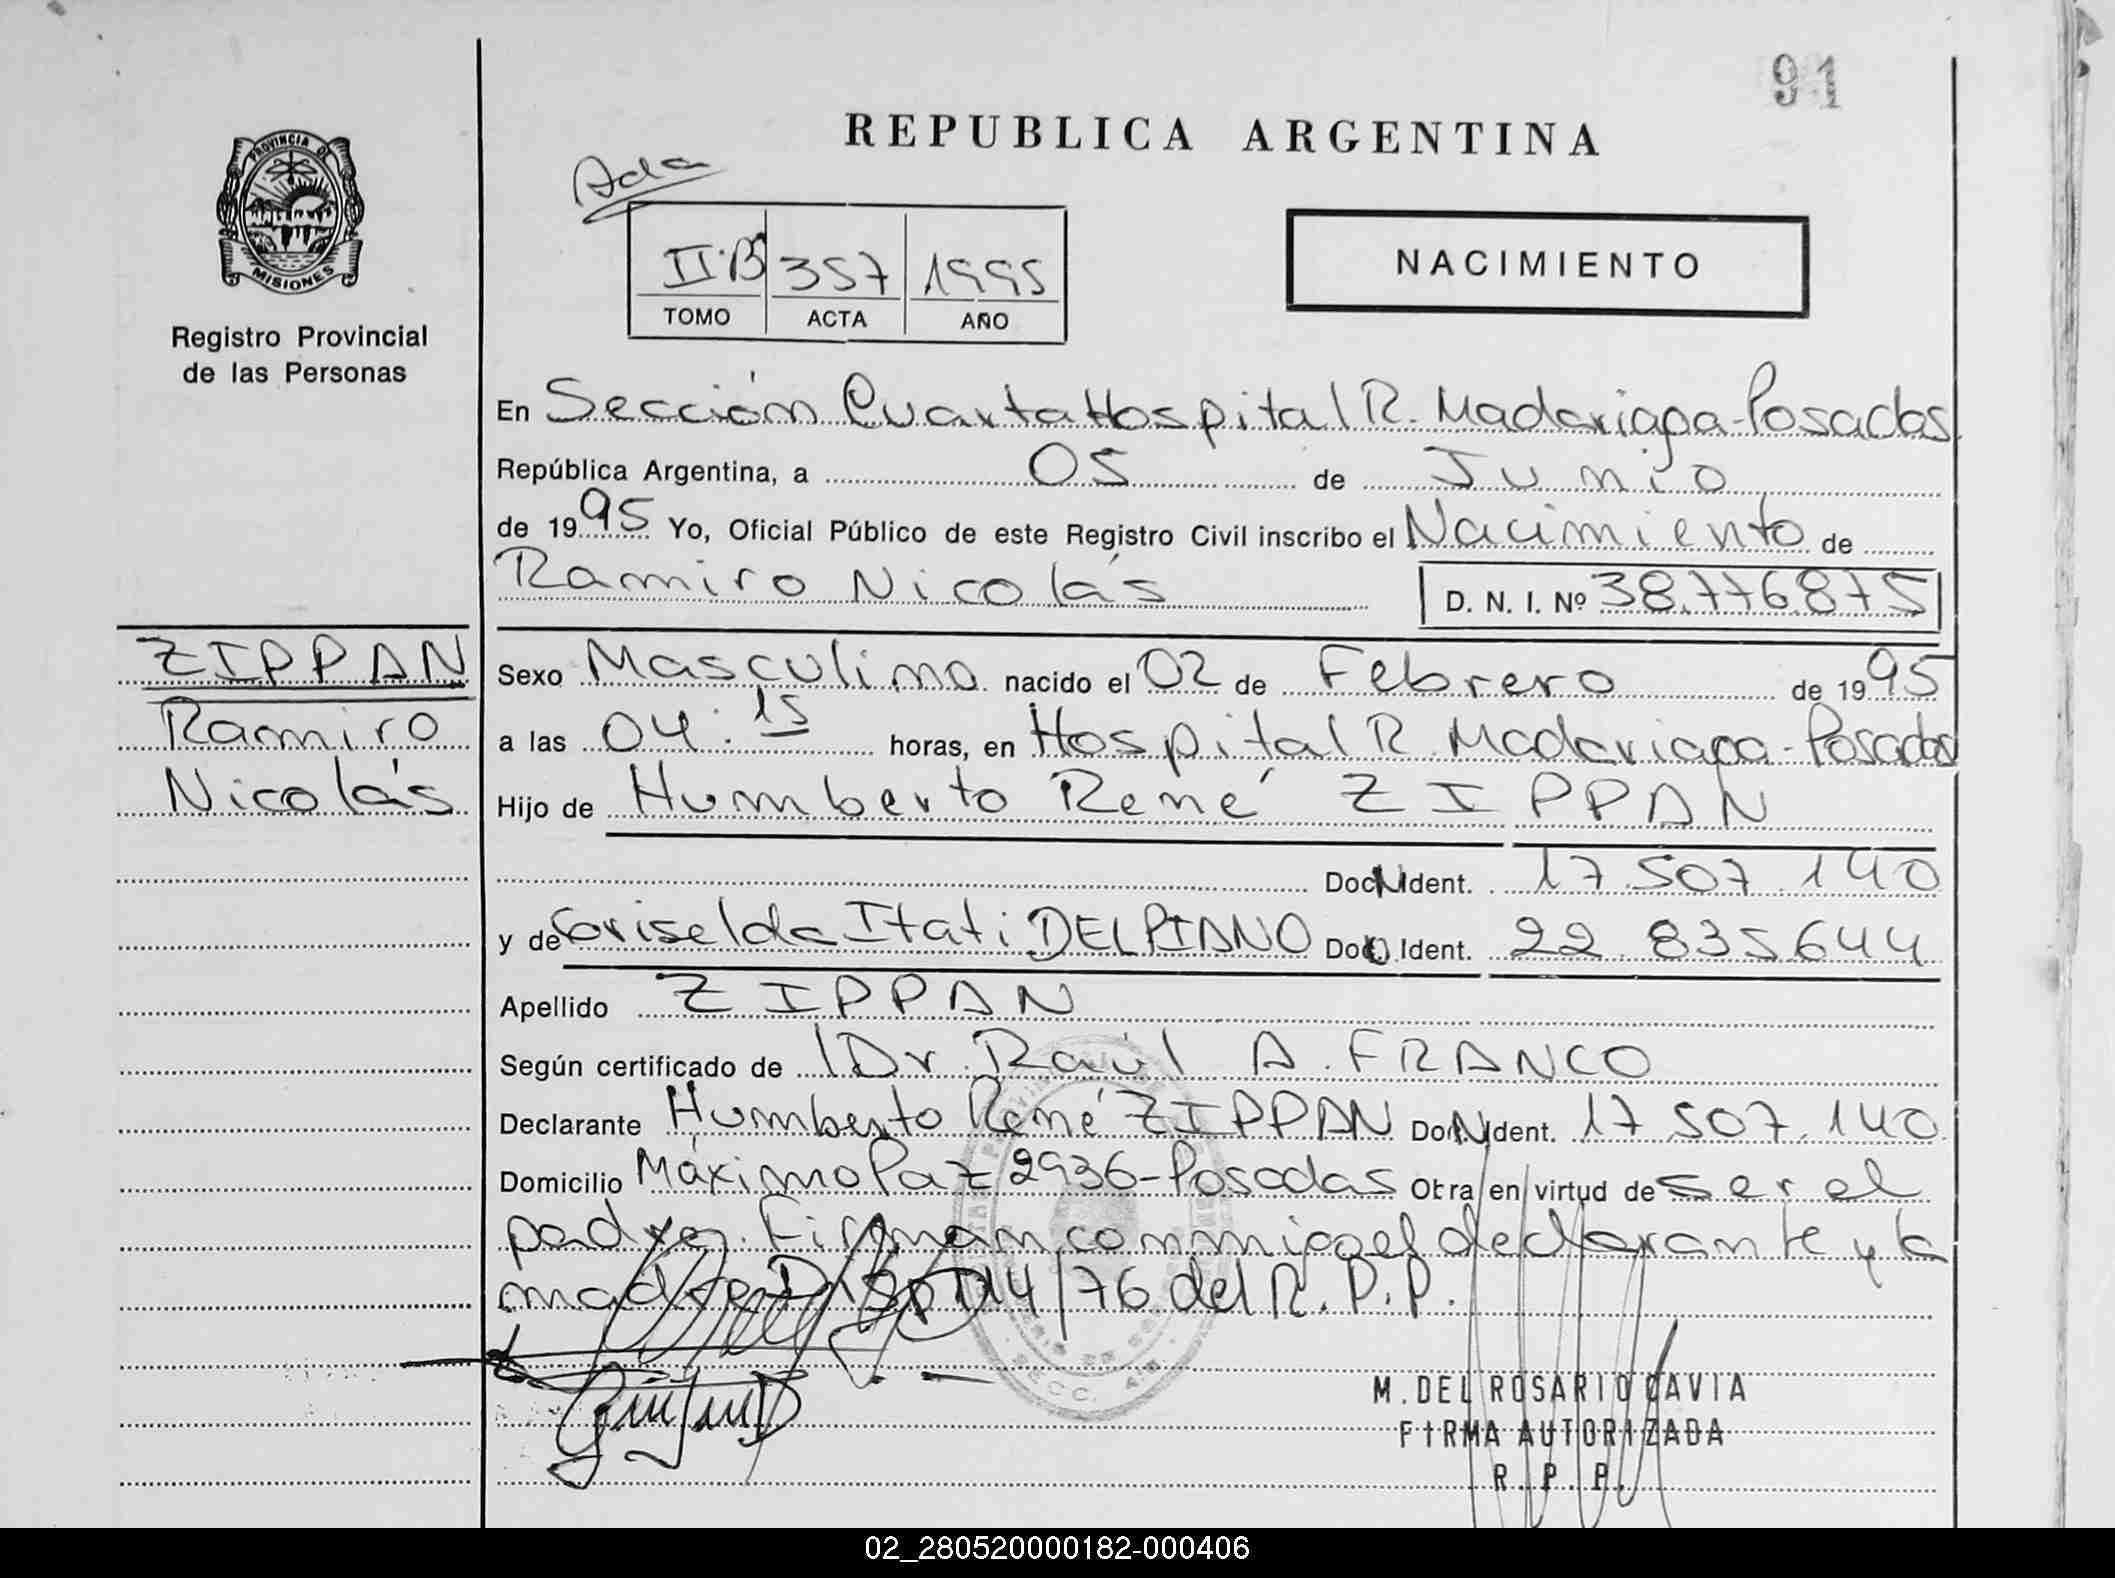 91
REPUBLICA ARGENTINA
PROVINCIA DE
MISIONES
Registro Provincial
de las Personas
Ada
II·B 357 1995
TOMO ACTA AÑO
NACIMIENTO
En Sección Cuarta Hospital R. Madariaga-Posadas
República Argentina, a 05 de Junio
de 1995 Yo, Oficial Público de este Registro Civil inscribo el Nacimiento de
Ramiro Nicolás D. N. I. Nº 38.776.875
ZIPPAN
Ramiro
Nicolás
Sexo Masculino nacido el 02 de Febrero de 1995
a las 04:15 horas, en Hospital R. Madariaga-Posadas
Hijo de Humberto René ZIPPAN
Doc. Ident. 17.507.140
y de Griselda Itati DELPIANO Doc. Ident. 22.835.644
Apellido ZIPPAN
Según certificado de Dr. Raúl A. FRANCO
Declarante Humberto René ZIPPAN Doc. Ident. 17.507.140
Domicilio Máximo Paz 2936-Posadas Otra en virtud de ser el
padre. Firman conmigo el declarante y la
madre Disp 114/76 del R.P.P.
SECC. 4ta.
M. DEL ROSARIO CAVIA
FIRMA AUTORIZADA
R. P. P.
02_280520000182-000406